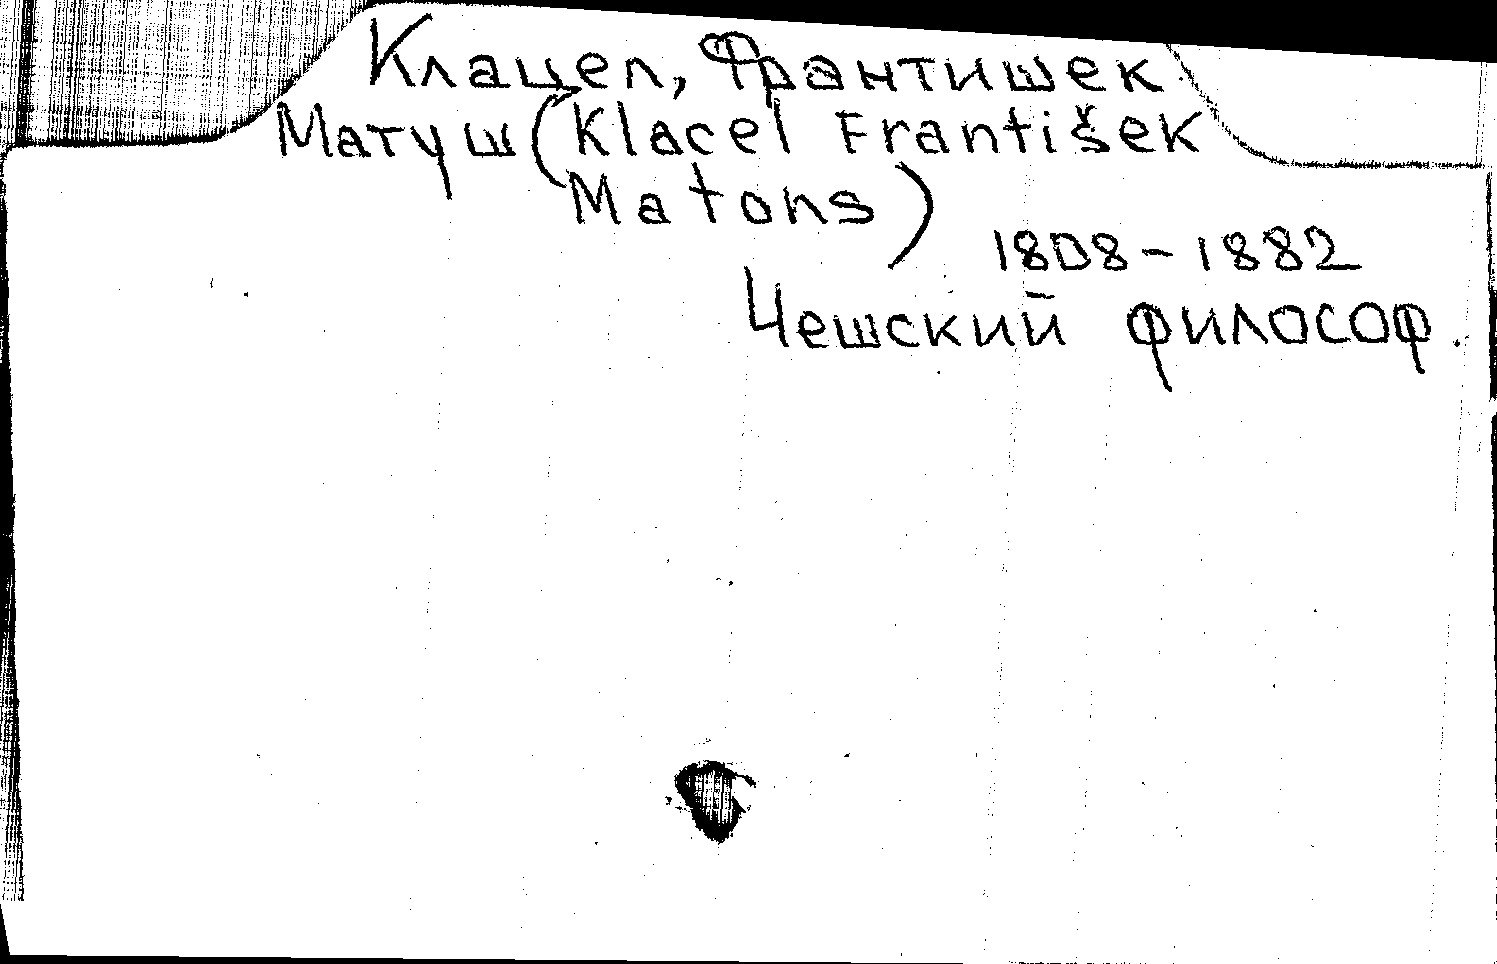 Клацел, Франтишек
Матуш (Klacel František
Matons)
1808-1882
Чешский философ.